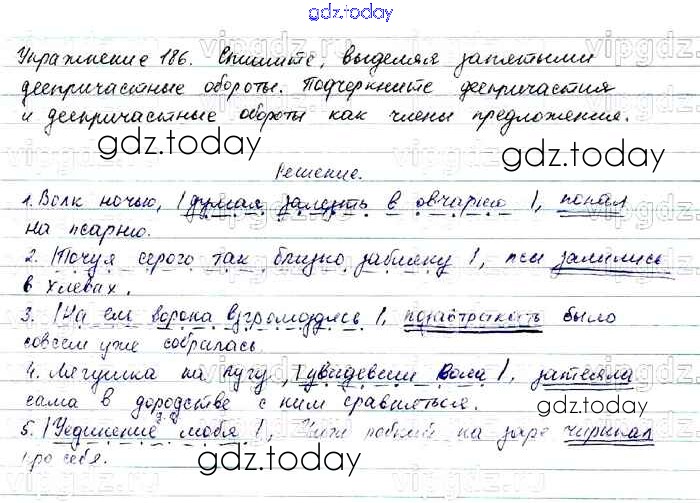 gdz.today
Упражнение 186. Спишите, выделяя запятыми
деепричастные обороты. Подчеркните деепричастия
и деепричастные обороты как члены предложения.
gdz.today gdz.today
Решение.
1. Волк ночью, |думая залезть в овчарню|, попал
на псарню.
2. |Почуя серого так близко забияку|, псы залились
в хлевах.
3. |На ель ворона взгромоздясь|, позавтракать было
совсем уже собралась.
4. Лягушка на лугу, |увидевши вола|, затеяла
сама в дородстве с ним сравняться.
gdz.today
5. |Уединение любя|, Чиж робкий на заре чирикал
про себя.
gdz.today